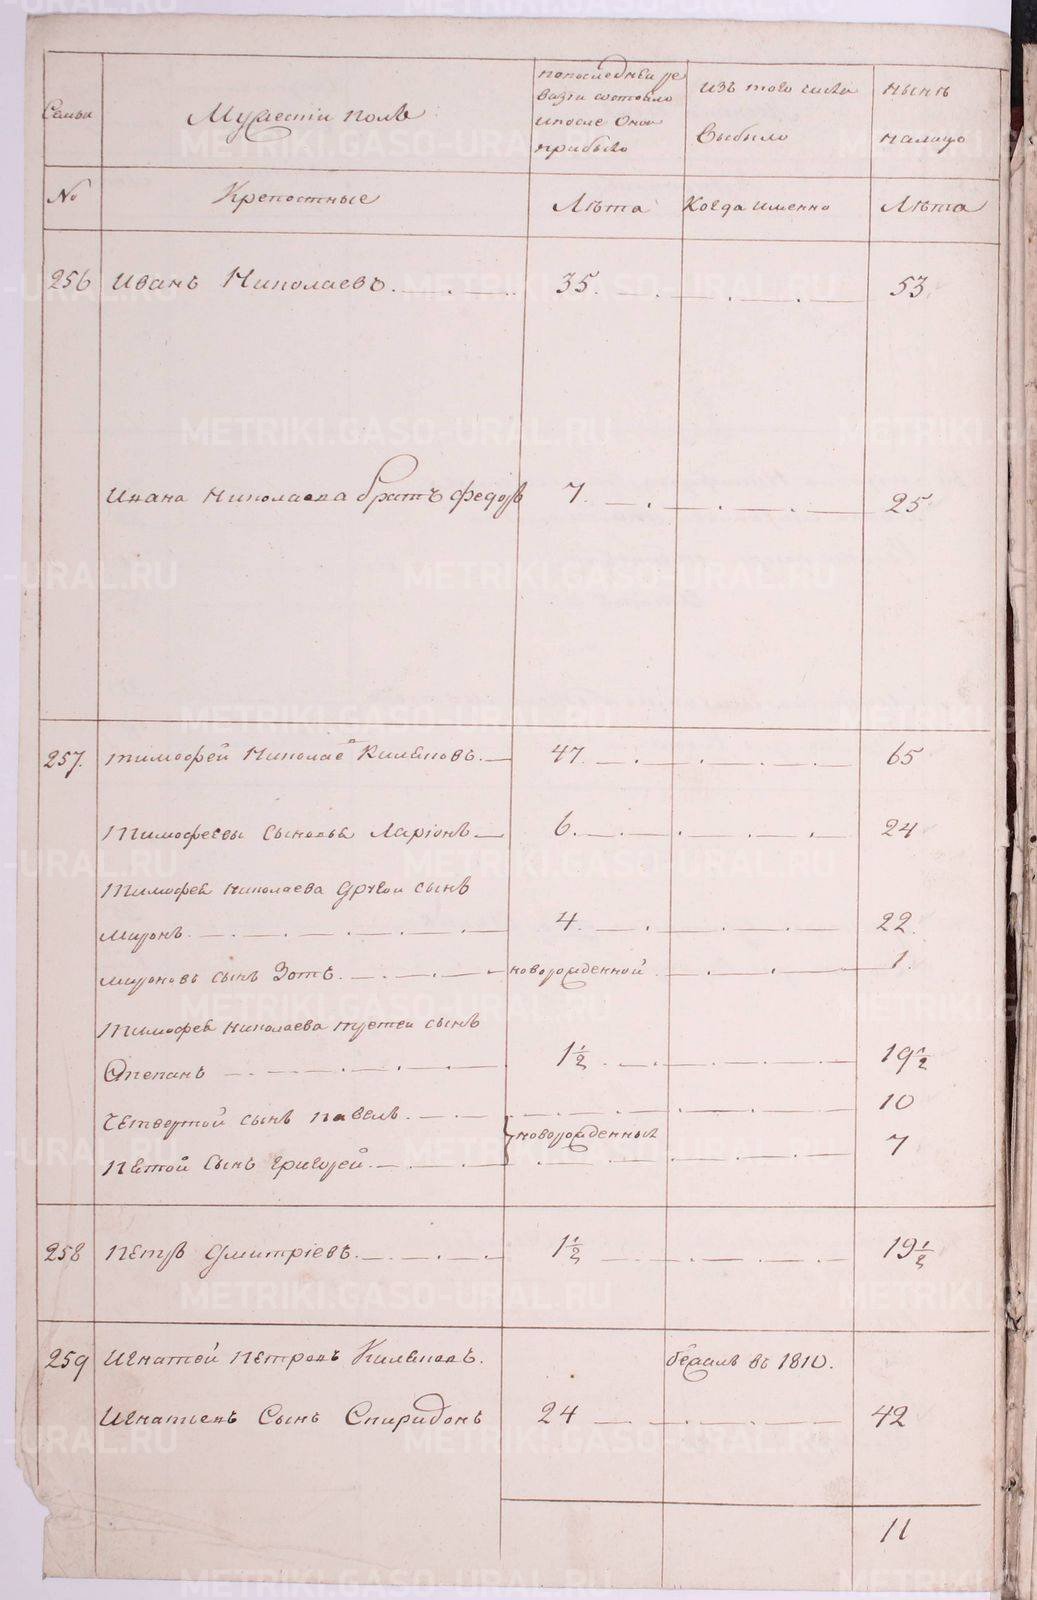 Семьи
Мужескiй полъ
по последней ре
визiи состояло
и после оной
прибыло
изъ того числа
выбыло
ныне
налицо
№
Крепостные
Лѣта
Когда именно
Лѣта
256 Иванъ Николаевъ. 35. 53.
Ивана Николаева братъ Федоръ 7. 25.
257. Тимофей Николаевъ Килёновъ. 47. 65
Тимофеевы сыновья Ларiонъ 6. 24
Тимофея Николаева другой сынъ
Миронъ. 4. 22.
Мироновъ сынъ Зотъ. новорожденной 1.
Тимофея Николаева третей сынъ
Степанъ 1½. 19½
Четвертой сынъ Павелъ. 10
новорожденные
Пятой сынъ Григорей. 7
258 Петръ Дмитрiевъ. 1½ 19½
259 Игнатей Петровъ Килёновъ. бежалъ въ 1810.
Игнатьевъ сынъ Спиридонъ 24 42
11
METRIKI.GASO-URAL.RU